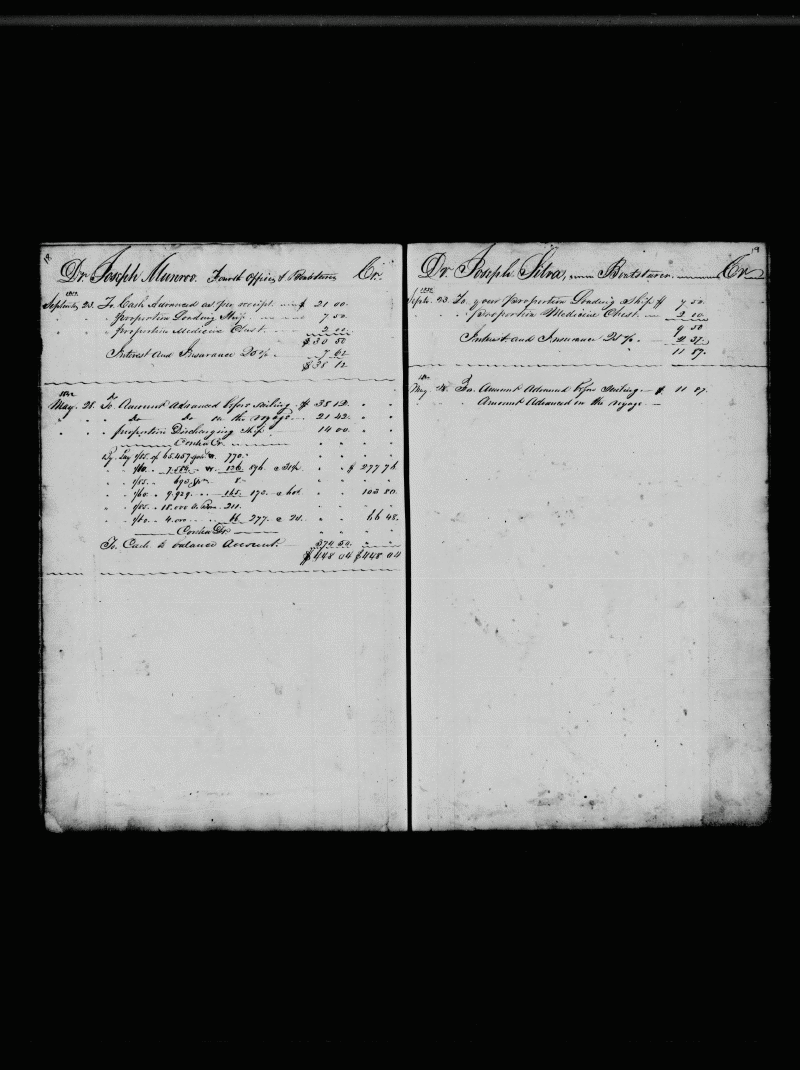 Dr. Joseph Munroe. Fourth Officer & Boatsteerer Cr.
September 23. To Cash Advanced as per receipt. $ 21 00.
" " proportion Loading Ship. 7 50.
" " proportion Medicine Chest. 2 00
$ 30 50
Interest and Insurance 25%. 7 62
$ 38 12
May. 28. To Amount Advanced before sailing. $ 38 12. " "
" " " do do on the voyage. 21 42. " "
" " " proportion Discharging Ship 14 00. " "
Contra Cr.
By Lay of 65.457 770.
7.584 126 896. " " $ 277 76
8
9.929. 165. 173. " " 103 80.
18.000 211.
4.000 66 277. @ 24. " " 66 48.
Contra Dr.
To Cash to balance Account. 374 50. " "
$ 448 04 $ 448 04
19
Dr. Joseph Silva, Boatsteerer. Cr.
Septr. 23. To your proportion Loading Ship. $ 7 50.
" " " proportion Medicine Chest. 2 00.
9 50
Interest and Insurance 25%. 2 37.
11 87.
May. 28. To Amount Advanced before Sailing $ 11 87.
" " Amount Advanced on the voyage